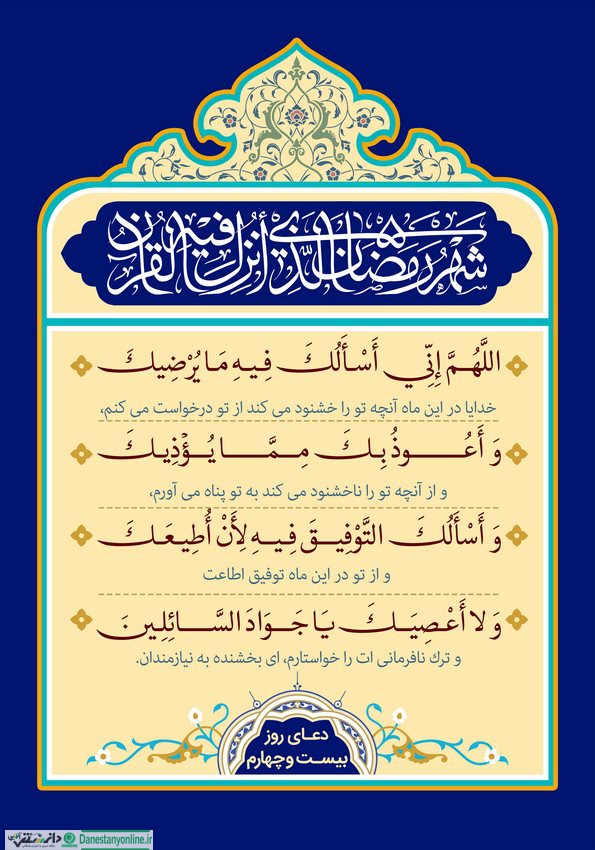 شَهْرُ رَمَضَانَ الَّذِي أُنْزِلَ فِيهِ الْقُرْآنُ
اللَّهُمَّ إِنِّي أَسْأَلُكَ فِيهِ مَا يُرْضِيكَ
خدایا در این ماه آنچه تو را خشنود می کند از تو درخواست می کنم،
وَ أَعُوذُ بِكَ مِمَّا يُؤْذِيكَ
و از آنچه تو را ناخشنود می کند به تو پناه می آورم،
وَ أَسْأَلُكَ التَّوْفِيقَ فِيهِ لِأَنْ أُطِيعَكَ
و از تو در این ماه توفیق اطاعت
وَ لا أَعْصِيَكَ يَا جَوَادَ السَّائِلِينَ
و ترك نافرمانی ات را خواستارم، ای بخشنده به نیازمندان.
دعای روز
بیست و چهارم
Danestanyonline.ir